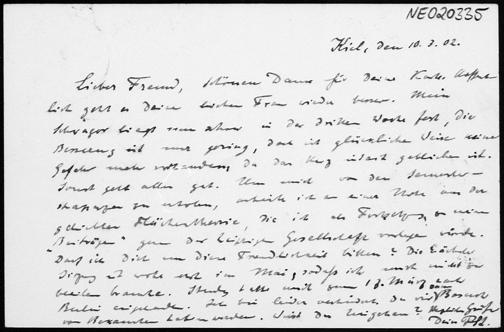 NE020335
Kiel, den 10.3.02.
Lieber Freund, schönen Dank für Deine Karte. Hoffent-
lich geht es Deiner Frau wieder besser. Mein
Schwager liegt nun schon in der dritten Woche fest, die
Besserung ist nur gering, doch ist glücklicher Weise keine
Gefahr mehr vorhanden, da das Herz intact geblieben ist.
Sonst geht alles gut. Um mich von den Semester-
strapazen zu erholen, arbeite ich an einer Note aus der
Flächentheorie, die ich als Fortsetzung zu meinen
"Beiträgen" gern der Leipziger Gesellschaft vorlegen würde.
Darf ich Dich um Deine Freundlichkeit bitten? Die nächste
Sitzung ist wohl erst im Mai, sodaß ich mich nicht zu
beeilen brauche. Study hatte mich zum 17. März nach
Berlin eingeladen. Ich bin leider verhindert, da wir Besuch
von Bekannten haben werden. Wirst Du hingehen? Herzliche Grüße
Dein